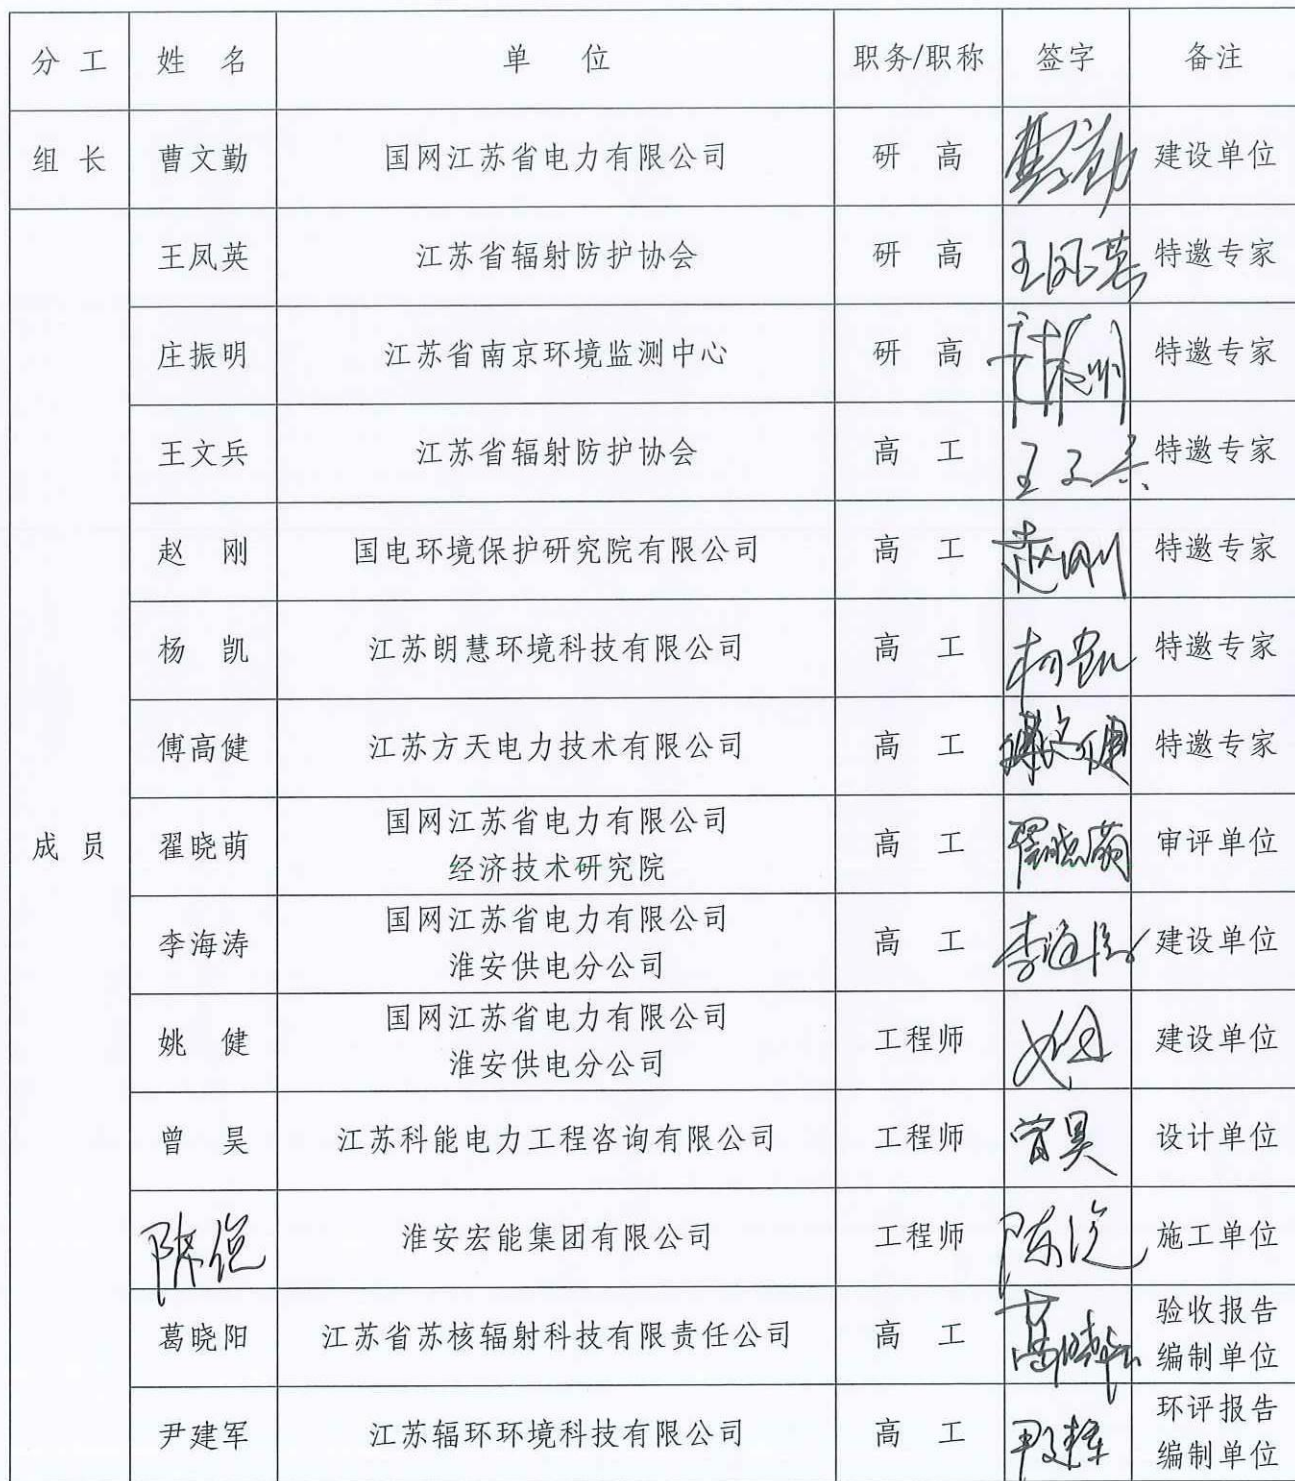 分 工 姓 名 单 位 职务/职称 签字 备注
组 长 曹文勤 国网江苏省电力有限公司 研 高 曹文勤 建设单位
成 员
王凤英 江苏省辐射防护协会 研 高 王凤英 特邀专家
庄振明 江苏省南京环境监测中心 研 高 庄振明 特邀专家
王文兵 江苏省辐射防护协会 高 工 王文兵 特邀专家
赵 刚 国电环境保护研究院有限公司 高 工 赵刚 特邀专家
杨 凯 江苏朗慧环境科技有限公司 高 工 杨凯 特邀专家
傅高健 江苏方天电力技术有限公司 高 工 傅高健 特邀专家
翟晓萌 国网江苏省电力有限公司
经济技术研究院 高 工 翟晓萌 审评单位
李海涛 国网江苏省电力有限公司
淮安供电分公司 高 工 李海涛 建设单位
姚 健 国网江苏省电力有限公司
淮安供电分公司 工程师 姚健 建设单位
曾 昊 江苏科能电力工程咨询有限公司 工程师 曾昊 设计单位
淮安宏能集团有限公司 工程师 施工单位
葛晓阳 江苏省苏核辐射科技有限责任公司 高 工 葛晓阳 验收报告
编制单位
尹建军 江苏辐环环境科技有限公司 高 工 尹建军 环评报告
编制单位